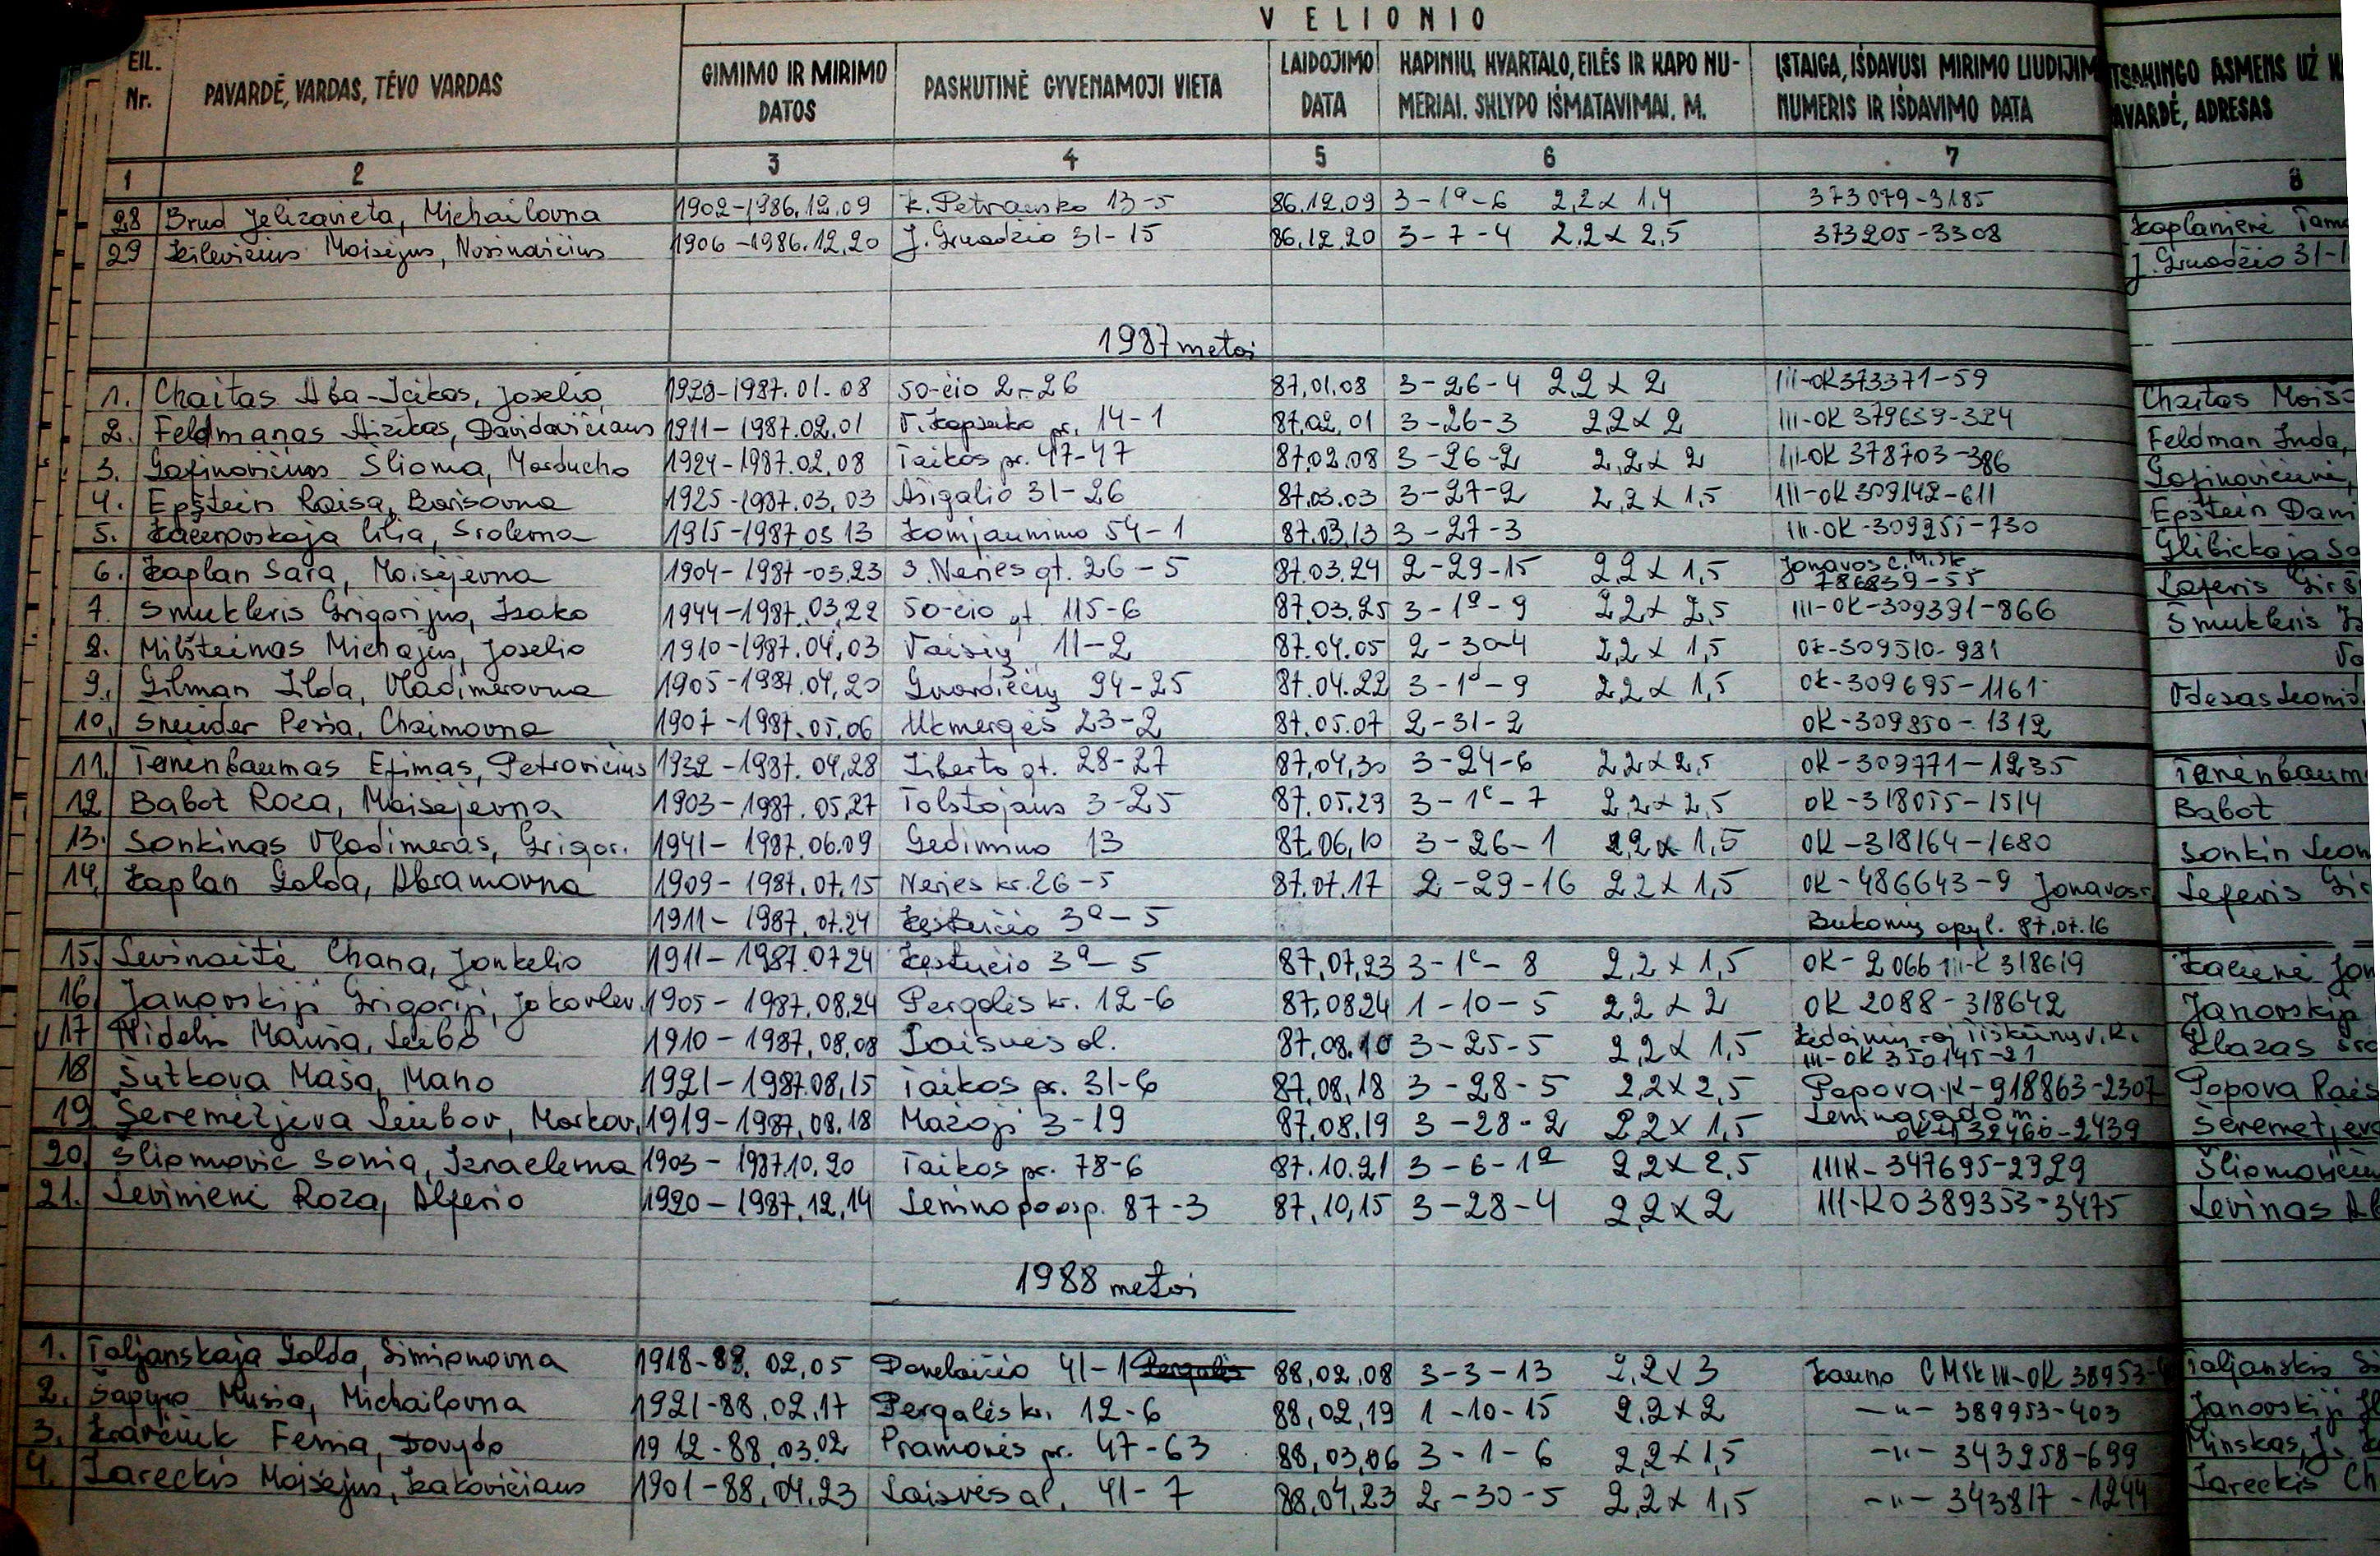 VELIONIO
EIL. Nr. PAVARDĖ, VARDAS, TĖVO VARDAS GIMIMO IR MIRIMO DATOS PASKUTINĖ GYVENAMOJI VIETA LAIDOJIMO DATA KAPINIŲ, KVARTALO, EILĖS IR KAPO NUMERIAI. SKLYPO IŠMATAVIMAI. M. ĮSTAIGA, IŠDAVUSI MIRIMO LIUDIJIM NUMERIS IR IŠDAVIMO DATA TSAKINGO ASMENS UŽ AVARDĖ, ADRESAS
1 2 3 4 5 6 7 8
28 Brud Jelizavieta, Michailovna 1902-1986.12.09 K. Petrausko 13-5 86.12.09 3-1a-6 2,2x1,4 373079-3185
29 Kilevičius Moisėjus, Nosinovičius 1906-1986.12.20 J. Gruodžio 31-15 86.12.20 3-7-4 2,2x2,5 373205-3308 Kaplanienė Tam
J. Gruodžio 31-1
1987 metai
1. Chaitas Aba-Icikas, Joselio 1928-1987.01.08 50-čio 2-26 87.01.08 3-26-4 2,2x2 III-OK373371-59 Chaitas Moiš
2. Feldmanas Aizikas, Davidovičiaus 1911-1987.02.01 V. Kapsuko pr. 14-1 87.02.01 3-26-3 2,2x2 III-OK 379659-324 Feldman Inda,
3. Gofinovičius Slioma, Morducho 1924-1987.02.08 Taikos pr. 47-47 87.02.08 3-26-2 2,2x2 III-OK 378703-386 Gofinovičienė,
4. Epštein Raisa, Borisovna 1925-1987.03.03 Ašigalio 31-26 87.03.03 3-27-2 2,2x1,5 III-OK 309142-611 Epštein Dani
5. Kačenovskaja Cilia, Srolerna 1915-1987 03 13 Komjaunimo 54-1 87.03.13 3-27-3 III-OK-309255-730 Glibickaja So
6. Kaplan Sara, Moisejevna 1904-1987-03.23 S. Neries gt. 26-5 87.03.24 2-29-15 2,2x1,5 Jonavos C.M.Sk. 786839-55 Leferis Girš
7. Smukleris Grigorijus, Isako 1944-1987.03.22 50-čio gt. 115-6 87.03.25 3-1a-9 2,2x2,5 III-OK-309391-866 Šmukleris
8. Milšteinas Michajus, Joselio 1910-1987.04.03 Vaisių 11-2 87.04.05 2-30-4 2,2x1,5 OK-309510-981
9. Gilman Ilda, Vladimerovna 1905-1987.04.20 Gvardiečių 94-25 87.04.22 3-1d-9 2,2x1,5 OK-309695-1161 Odesas Leonid
10. Sneider Pesia, Chaimovna 1907-1987.05.06 Ukmergės 23-2 87.05.07 2-31-2 OK-309850-1312
11. Tenenbaumas Efimas, Petrovičius 1932-1987.04.28 Liberto gt. 28-27 87.04.30 3-24-6 2,2x2,5 OK-309771-1235 Tenenbaum
12 Babot Roza, Moisejevna 1903-1987.05.27 Tolstojaus 3-25 87.05.29 3-1c-7 2,2x2,5 OK-318055-1514 Babot
13. Sonkinas Vladimeras, Grigor. 1941-1987.06.09 Gedimino 13 87.06.10 3-26-1 2,2x1,5 OK-318164-1680 Sonkin Leon
14. Kaplan Golda, Abramovna 1909-1987.07.15 Neries kr. 26-5 87.07.17 2-29-16 2,2x1,5 OK-486643-9 Jonavos Leferis Gir
1911-1987.07.24 Kęstučio 3a-5 Bukonių apyl. 87.07.16
15. Levinaitė Chana, Jonkelio 1911-1987.07 24 Kęstučio 3a-5 87.07.23 3-1c-8 2,2x1,5 OK-2066 III-K 318619 Kacienė Jon
16. Janovskij Grigorij, Jokovlev. 1905-1987.08.24 Pergalės kr. 12-6 87.08.24 1-10-5 2,2x2 OK 2088-318642 Janovskij
17 Nidelis Mauša, Leibo 1910-1987.08.08 Laisvės al. 87.08.10 3-25-5 2,2x1,5 Kėdainių raj Tiškūnų v.K. III-OK 350145-21 Klazas Sro
18 Šutkova Maša, Mano 1921-1987.08.15 Taikos pr. 31-6 87.08.18 3-28-5 2,2x2,5 Popova K-918863-2307 Popova Raės
19 Šeremetjeva Liubov, Morkov. 1919-1987.08.18 Mažoji 3-19 87.08.19 3-28-2 2,2x1,5 Šeremetjeva
20 Šliomovič Sonia, Izraelerna 1903-1987.10.20 Taikos pr. 78-6 87.10.21 3-6-1a 2,2x2,5 IIIK-347695-2929 Šliomovičius
21. Levinienė Roza, Alperio 1920-1987.12.14 Lenino prosp. 87-3 87.10.15 3-28-4 2,2x2 III-KO389353-3475 Levinas Ab
1988 metai
1. Taljanskaja Golda, Simionovna 1918-88.02.05 Donelaičio 41-1 Pergalės 88.02.08 3-3-13 2,2x3 Kauno CMSk III-OK 38953- Taljanskis Si
2. Šapyro Musia, Michailovna 1921-88.02.17 Pergalės kr. 12-6 88.02.19 1-10-15 2,2x2 -"- 389953-403 Janovskij
3. Kravčiuk Fenia, Dovydo 1912-88.03.02 Pramonės pr. 47-63 88.03.06 3-1-6 2,2x1,5 -"- 343258-699 Minskas, J.
4. Zareckis Moisėjus, Izakovičiaus 1901-88.04.23 Laisvės al. 41-7 88.04.23 2-30-5 2,2x1,5 -"- 343817-1244 Zareckis Ch